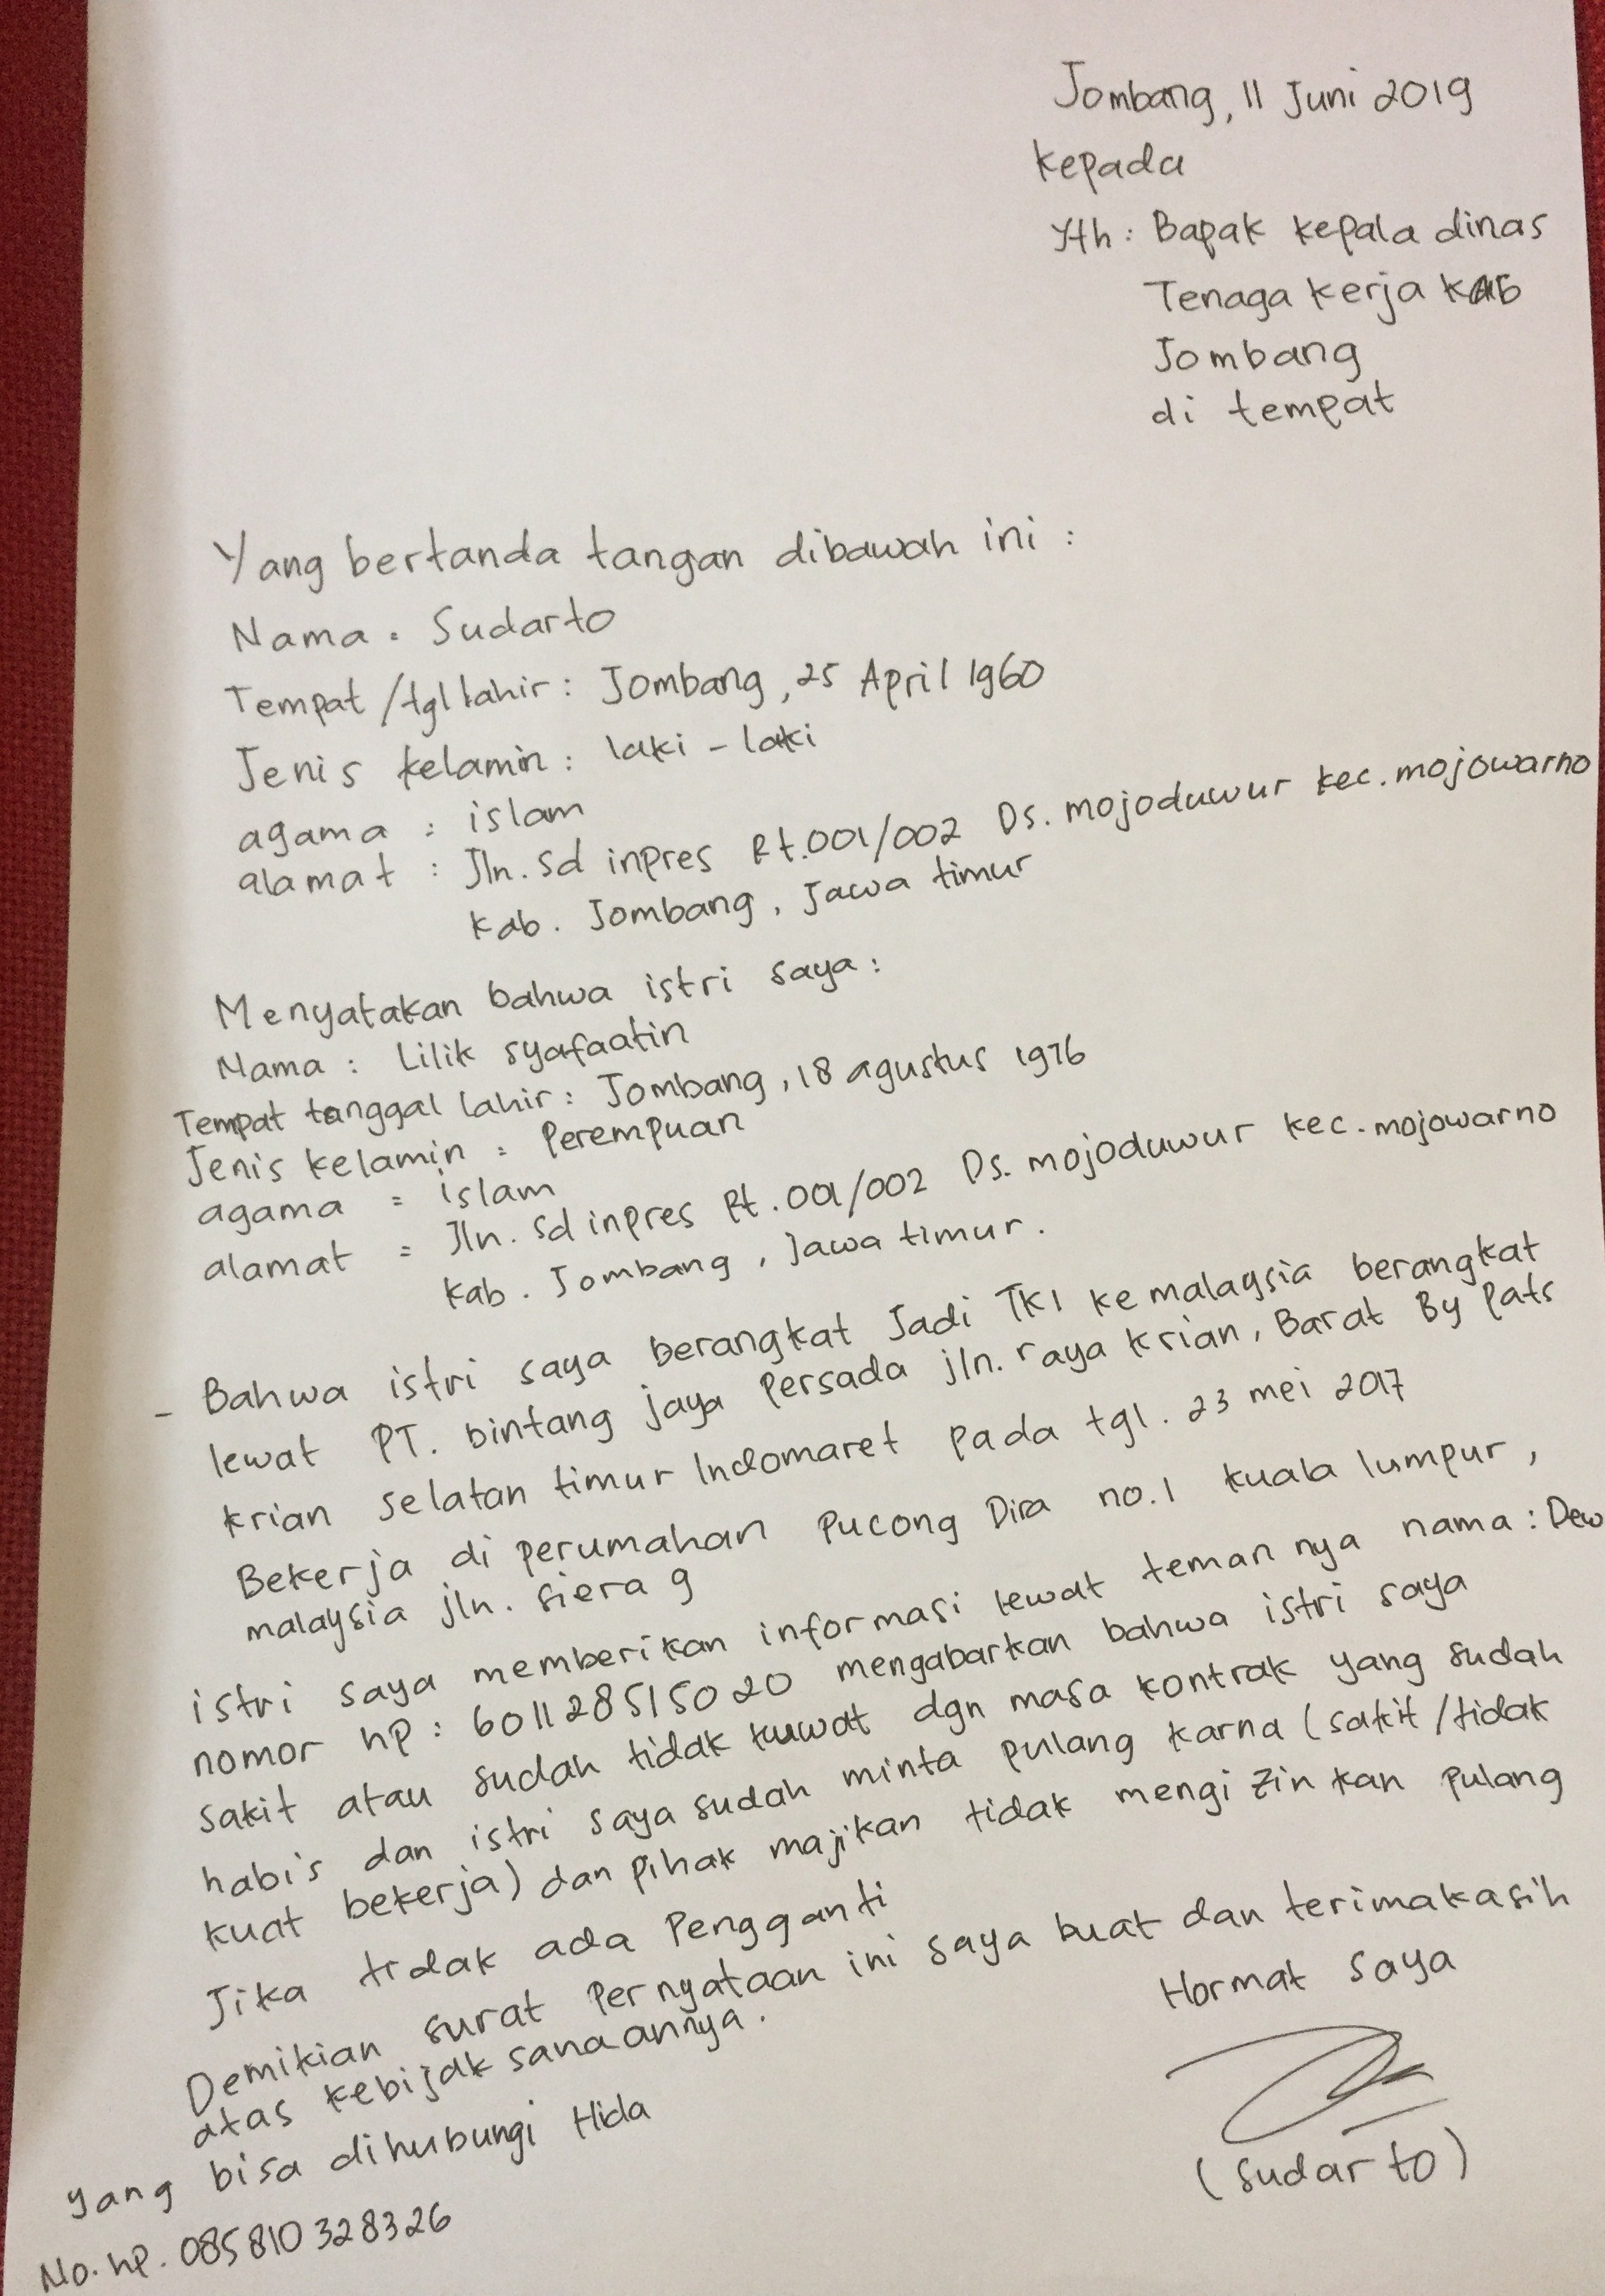 Jombang, 11 Juni 2019
kepada
Yth : Bapak kepala dinas
Tenaga kerja kab
Jombang
di tempat
Yang bertanda tangan dibawah ini :
Nama . Sudarto
Tempat /tgl lahir : Jombang, 25 April 1960
Jenis kelamin : laki - laki
agama : islam
alamat : Jln. Sd inpres Rt.001/002 Ds. mojoduwur kec. mojowarno
kab. Jombang, Jawa timur
Menyatakan bahwa istri saya :
Nama : Lilik syafaatin
Tempat tanggal lahir : Jombang, 18 agustus 1976
Jenis kelamin : Perempuan
agama = islam
alamat = Jln. Sd inpres Rt.001/002 Ds. mojoduwur kec. mojowarno
kab. Jombang, Jawa timur.
- Bahwa istri saya berangkat Jadi TKI ke malaysia berangkat
lewat PT. bintang jaya Persada jln. raya krian, Barat By Pats
krian selatan timur Indomaret pada tgl. 23 mei 2017
Bekerja di perumahan Pucong Dira no.1 kuala lumpur,
malaysia jln. siera 9
istri saya memberikan informasi lewat teman nya nama : Dew
nomor hp : 601128515020 mengabarkan bahwa istri saya
sakit atau sudah tidak kuwat dgn masa kontrak yang sudah
habis dan istri saya sudah minta pulang karna (sakit/tidak
kuat bekerja) dan pihak majikan tidak mengizinkan pulang
Jika tidak ada Pengganti
Demikian surat Pernyataan ini saya buat dan terimakasih
atas kebijaksanaannya.
Hormat saya
(sudarto)
yang bisa dihubungi Hida
No. hp. 085810328326